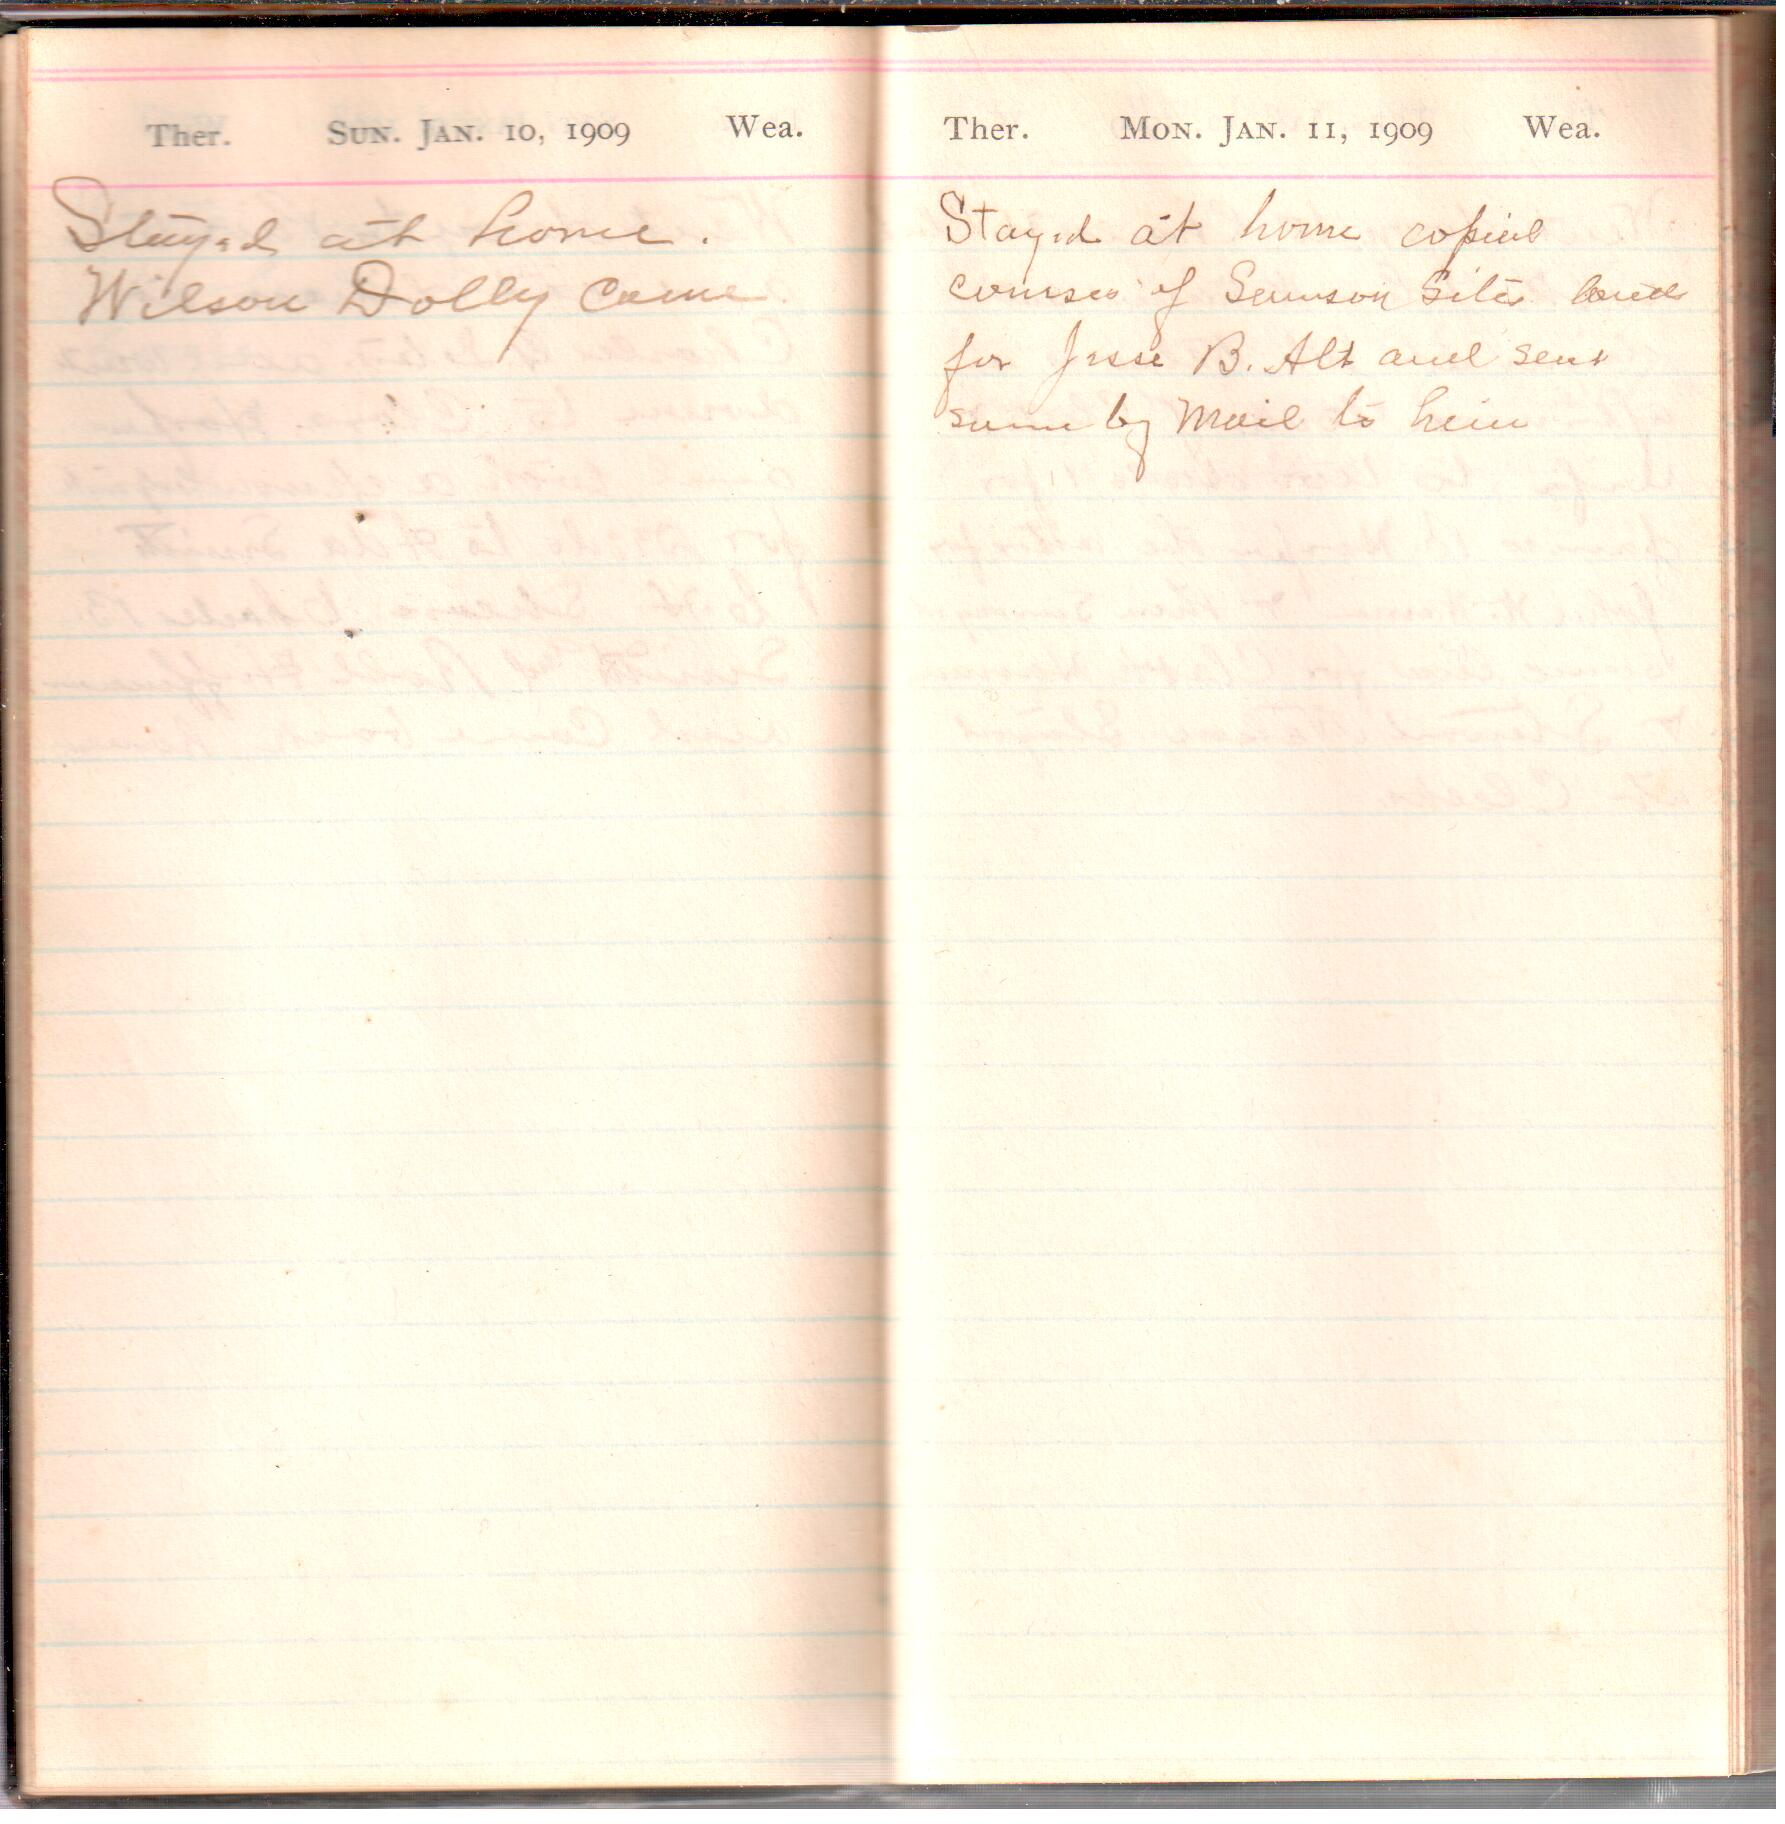 Ther. Sun. Jan. 10, 1909 Wea.
Stayed at home.
Wilson Dolly Came
Ther. Mon. Jan. 11, 1909 Wea.
Stayed at home copied
courses of Samson Sites land
for Jesse B. Alt and sent
same by Mail to him